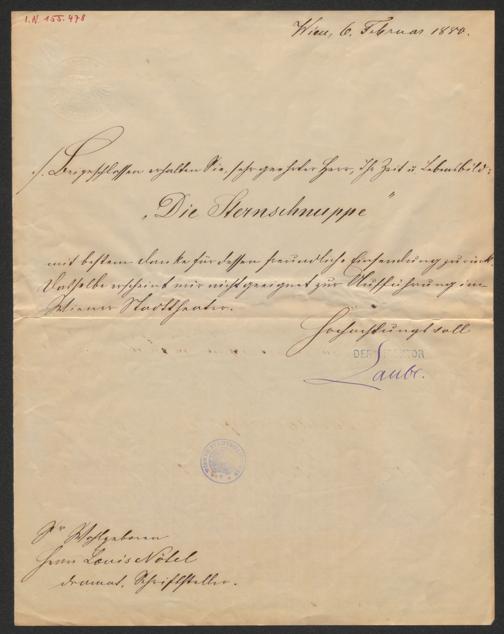 I.N. 155.478
Wien, 6. Februar 1880.
./. Beigeschlossen erhalten Sie, sehr geehrter Herr, Ihr Zeit u Lebensbild:
„Die Sternschnuppe“
mit bestem Danke für dessen freundliche Einsendung zurück
Dasselbe erscheint mir nicht geeignet zur Aufführung im
Wiener Stadttheater.
Hochachtungsvoll
DER DIREKTOR
Laube.
Sr Wohlgeboren
Herrn Louis Nötel
dramat. Schriftsteller.